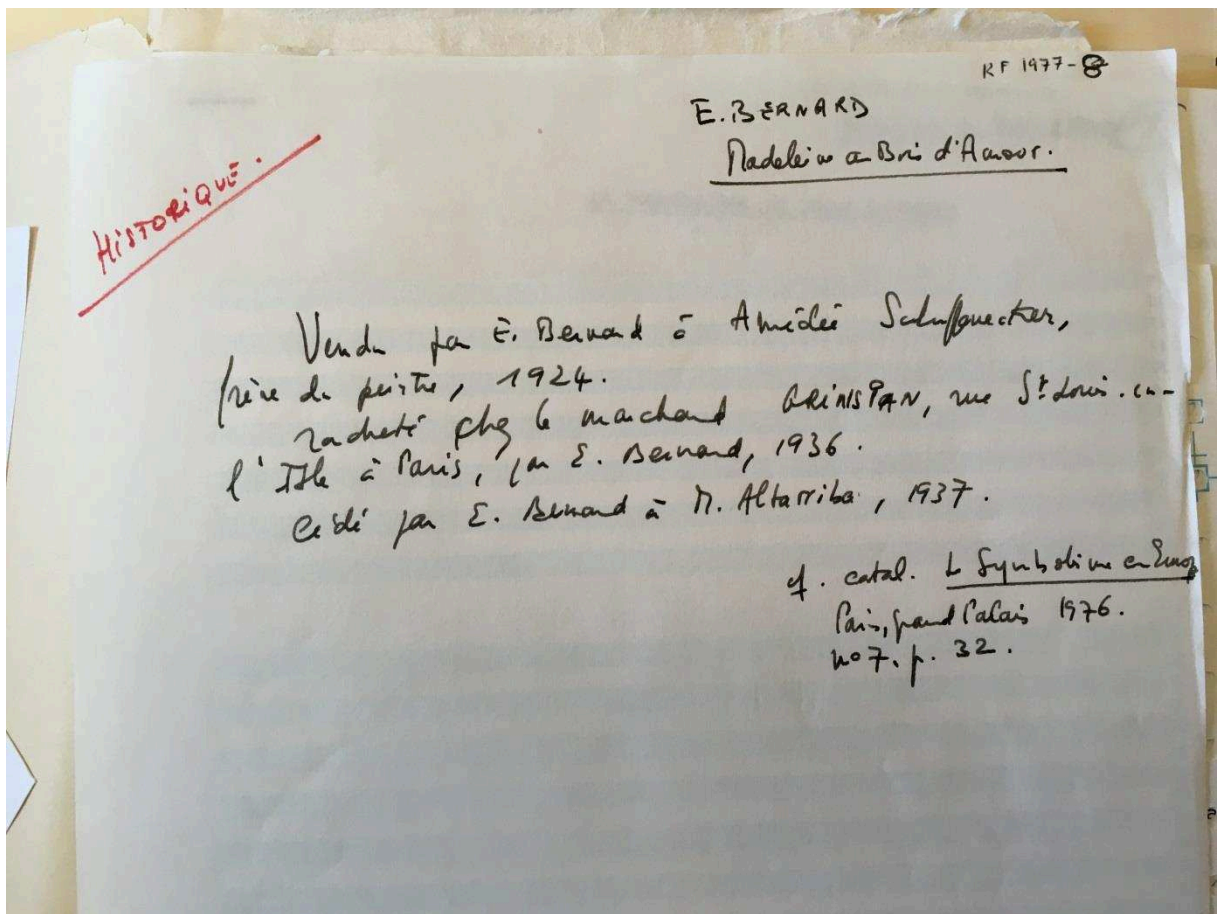 RF 1977-8
E. BERNARD
Madeleine au Bois d'Amour.
HISTORIQUE.
Vendu par E. Bernard à Amédée Schuffenecker,
frère du peintre, 1924.
racheté chez le marchand GRINSPAN, rue St Louis-en-
l'Isle à Paris, par E. Bernard, 1936.
Cédé par E. Bernard à M. Altarriba, 1937.
cf. catal. Le Symbolisme en Europe
Paris, grand Palais 1976.
no 7. p. 32.